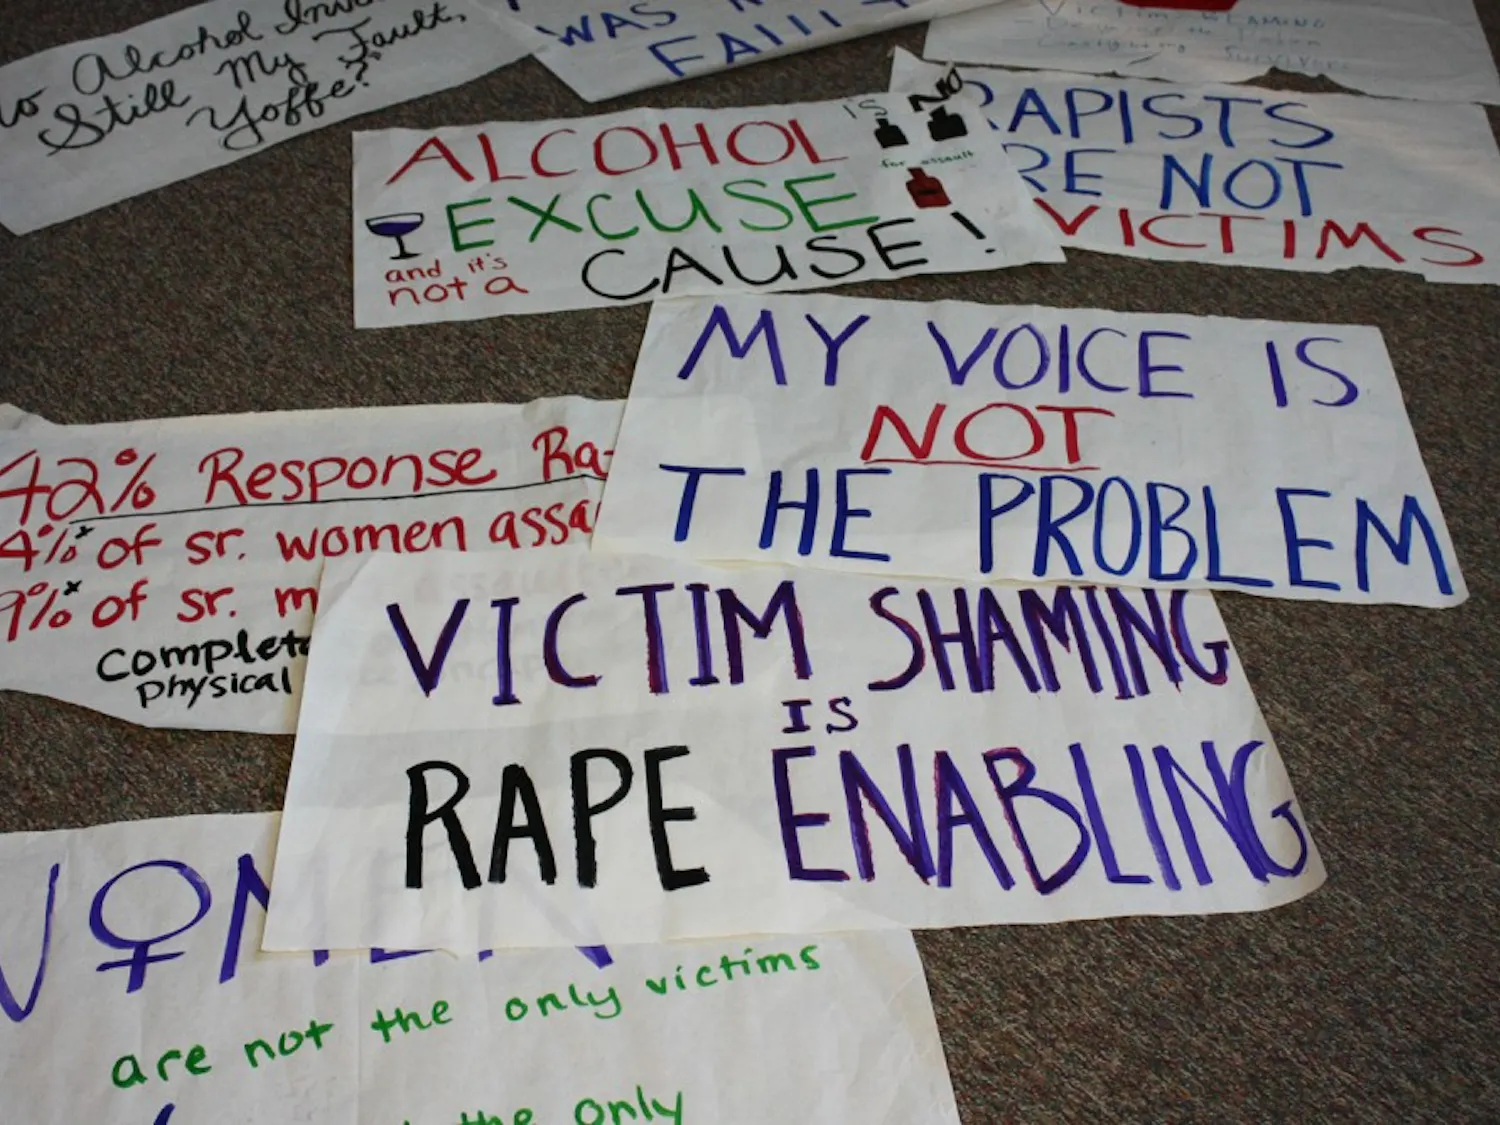 Alcohol
Still My Fault,
Yoffe?
WAS
ALCOHOL IS NO
EXCUSE for assault
and it's
not a CAUSE!
RAPISTS
ARE NOT
VICTIMS
MY VOICE IS
NOT
THE PROBLEM
42% Response Ra-
4%* of sr. women assa
9%* of sr. m
Complete
physical
VICTIM SHAMING
IS
RAPE ENABLING
are not the only victims
the only